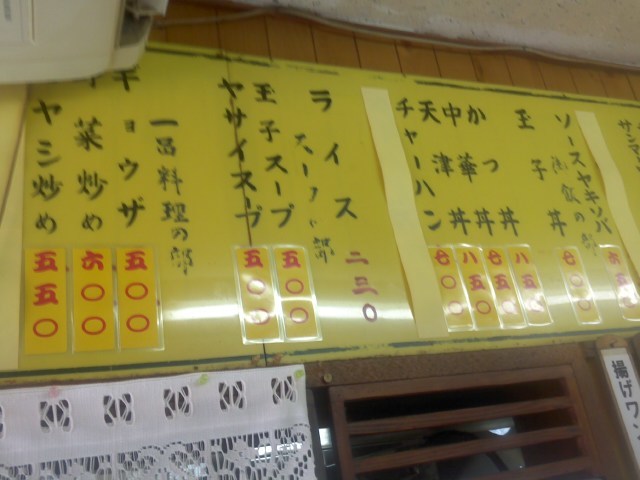 サンマ
ソースヤキソバ 六五
御飯の部
玉子丼 七〇〇
かつ丼 八五〇
中華丼 七五〇
天津丼 八五〇
チャーハン 七〇〇
ライス 二三〇
スープの部
玉子スープ 五〇〇
ヤサイスープ 五〇〇
一品料理の部
ギョウザ 五〇〇
菜炒め 六〇〇
ヤシ炒め 五五〇
揚げワン